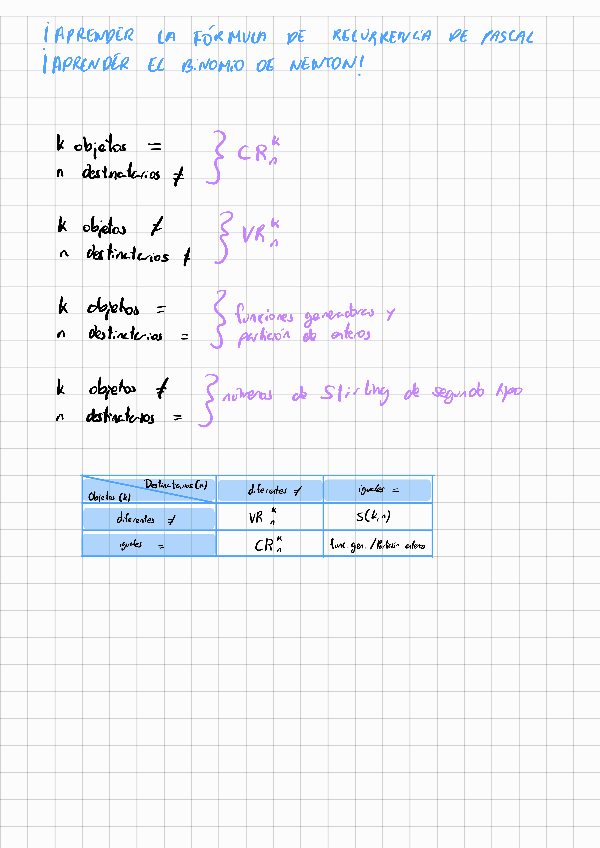 ¡APRENDER LA FÓRMULA DE RECURRENCIA DE PASCAL
¡APRENDER EL BINOMIO DE NEWTON!
k objetos =
n destinatarios ≠
} CR_n^k
k objetos ≠
n destinatarios ≠
} VR_n^k
k objetos =
n destinatarios =
} funciones generadoras y
partición de enteros
k objetos ≠
n destinatarios =
} números de Stirling de segundo tipo
Destinatarios (n)
Objetos (k)
diferentes ≠
iguales =
diferentes ≠
VR_n^k
S(k,n)
iguales =
CR_n^k
func. gen. / Partición enteros